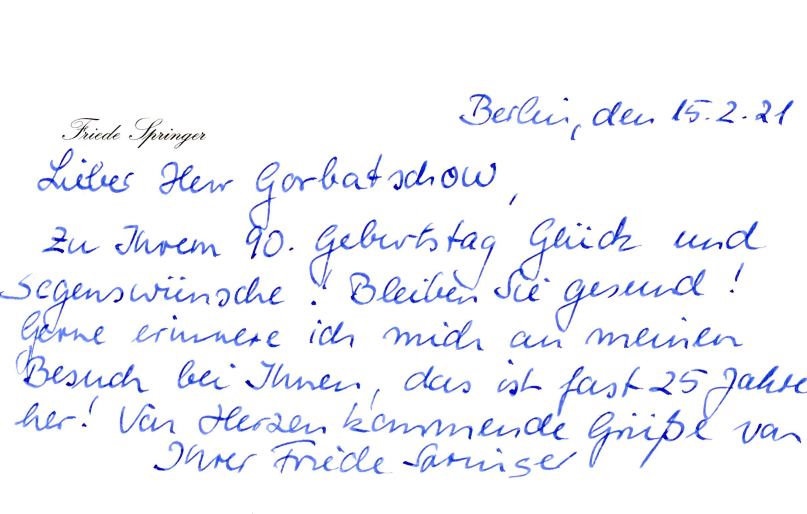 Berlin, den 15.2.21
Friede Springer
Lieber Herr Gorbatschow,
Zu Ihrem 90. Geburtstag Glück und
Segenswünsche! Bleiben Sie gesund!
Gerne erinnere ich mich an meinen
Besuch bei Ihnen, das ist fast 25 Jahre
her! Von Herzen kommende Grüße von
Ihrer Friede Springer